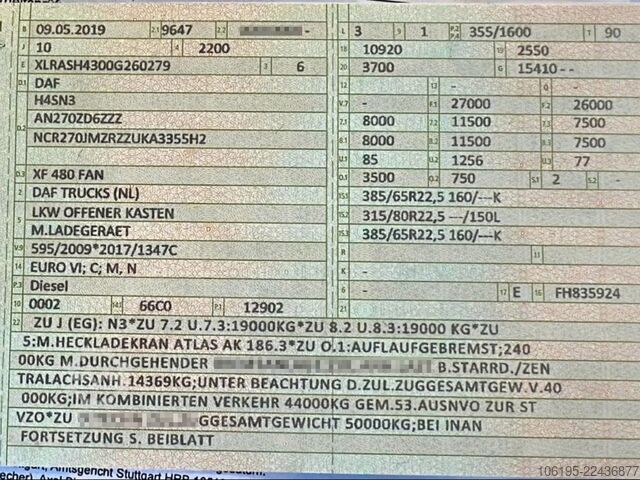 B 09.05.2019 2.1 9647 2.2 - L 3 9 1 P.2 P.4 355/1600 T 90
J 10 4 2200 18 10920 19 2550
E XLRASH4300G260279 3 6 20 3700 G 15410--
D.1 DAF 12 - 13 - Q -
H4SN3 V.7 - F.1 27000 F.2 26000
D.2 AN270ZD6ZZZ 7.1 8000 7.2 11500 7.3 7500
NCR270JMZRZZUKA3355H2 8.1 8000 8.2 11500 8.3 7500
U.1 85 U.2 1256 U.3 77
D.3 XF 480 FAN O.1 3500 O.2 750 S.1 2 S.2 -
2 DAF TRUCKS (NL) 15.1 385/65R22,5 160/---K
5 LKW OFFENER KASTEN 15.2 315/80R22,5 ---/150L
M.LADEGERAET 15.3 385/65R22,5 160/---K
V.9 595/2009*2017/1347C R 11
14 EURO VI; C; M, N K
P.3 Diesel 6 - 17 E 16 FH835924
10 0002 14.1 66C0 P.1 12902 21
22 ZU J (EG): N3*ZU 7.2 U.7.3:19000KG*ZU 8.2 U.8.3:19000 KG*ZU
5:M.HECKLADEKRAN ATLAS AK 186.3*ZU O.1:AUFLAUFGEBREMST;240
00KG M.DURCHGEHENDER B.STARRD./ZEN
TRALACHSANH.14369KG;UNTER BEACHTUNG D.ZUL.ZUGGESAMTGEW.V.40
000KG;IM KOMBINIERTEN VERKEHR 44000KG GEM.53.AUSNVO ZUR ST
VZO*ZU GGESAMTGEWICHT 50000KG;BEI INAN
FORTSETZUNG S. BEIBLATT
Amtsgericht Stuttgart HRB
106195-22436877